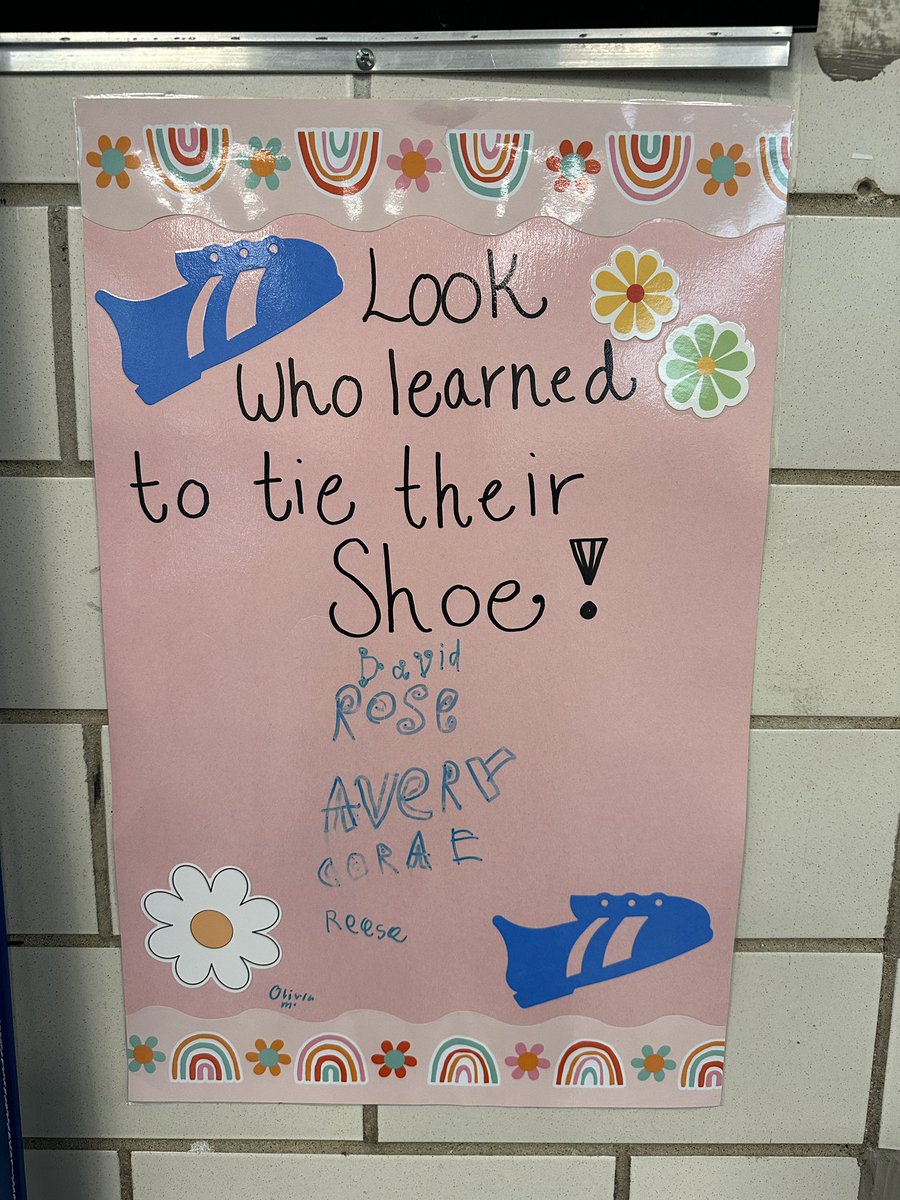 Look
Who learned
to tie their
Shoe!
David
Rose
AVeRY
CORAE
Reese
Olivia
m.